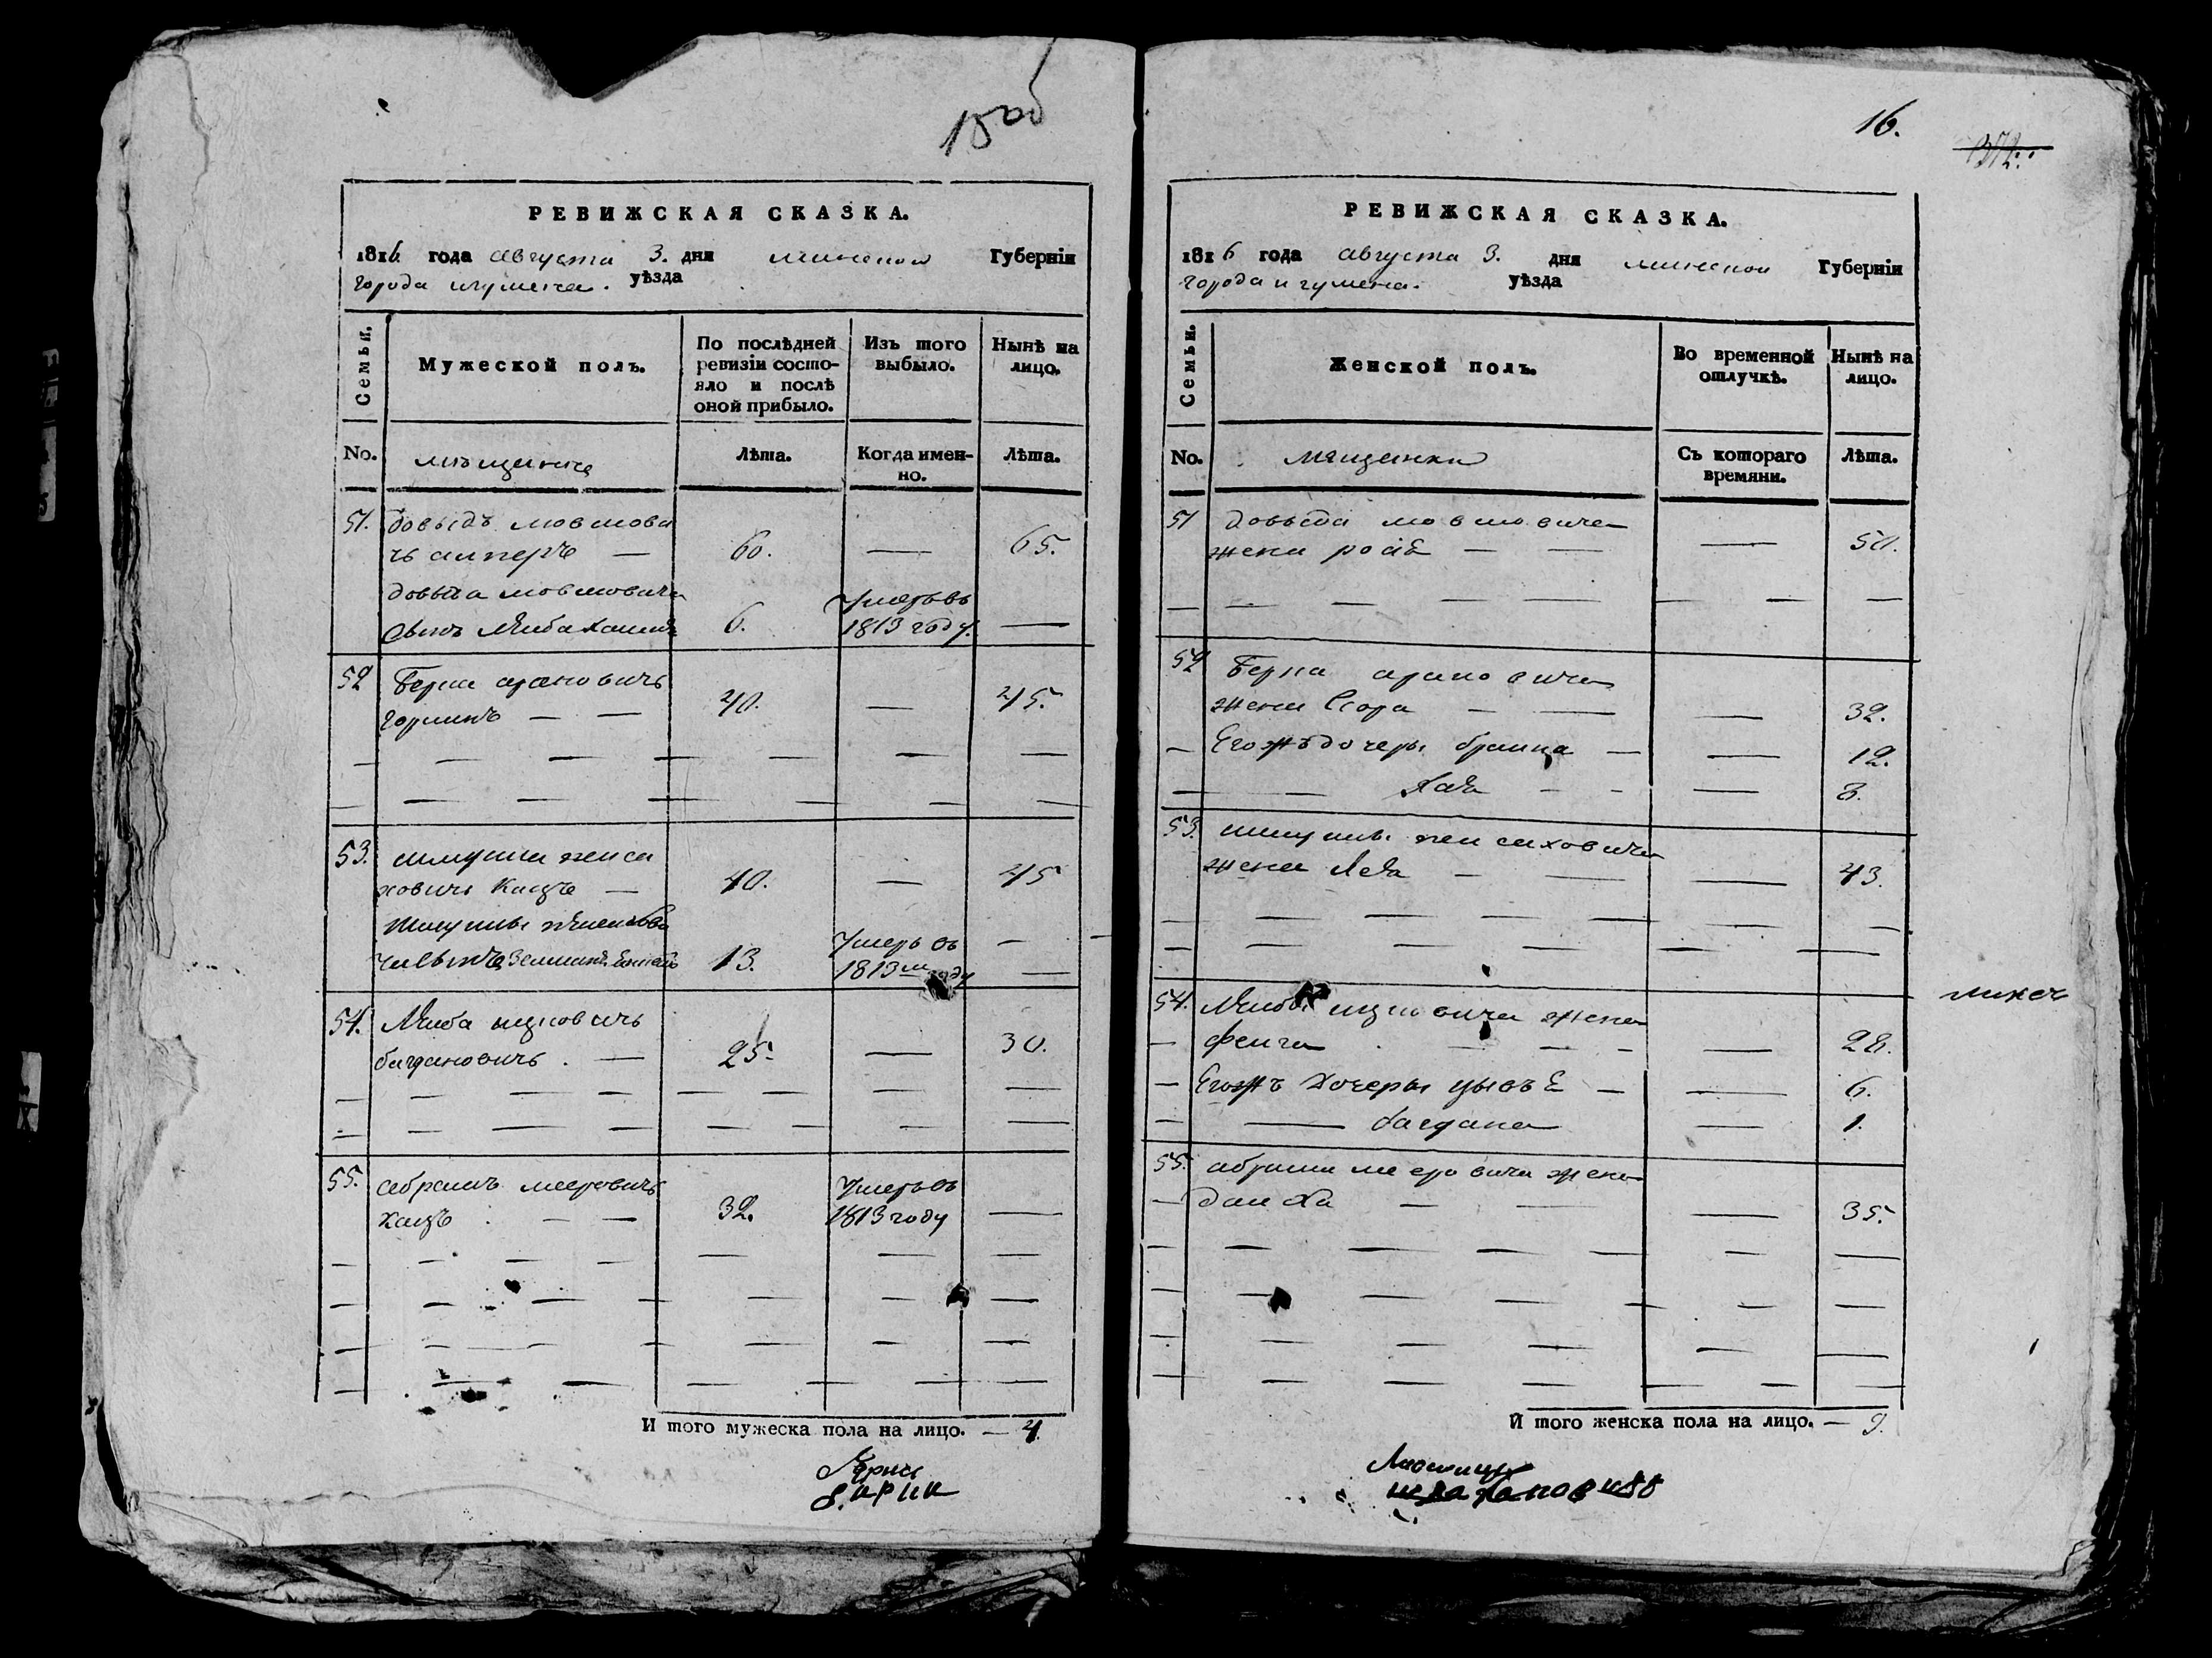 15об
РЕВИЖСКАЯ СКАЗКА.
1816 года августа 3. дня минской Губерніи
города игумена. уѣзда
Семьи.
Мужеской полъ.
По послѣдней ревизіи состо-
яло и послѣ
оной прибыло.
Изъ того
выбыло.
Нынѣ на
лицо.
No.
мѣщанъ
Лѣта.
Когда имен-
но.
Лѣта.
51. довыдъ мовшови
чъ алперъ — 60. — 65.
довыда мовшовича
сынъ Лейба Хаимъ 6. Умеръ въ
1813 году. —
52 Берка ароновичъ
горшинъ — — 40. — 45.
53. шмуила пейса
ховичъ Кацъ — 40. — 45
Шмуилы
13. Умеръ въ
1813м году —
54. Лейба ицковичъ
багдановичъ. — 25. — 30.
55. абрамъ мееровичъ
Кацъ. — — 32. Умеръ въ
1813 году —
И того мужеска пола на лицо. — 4.
16.
372.
РЕВИЖСКАЯ СКАЗКА.
1816 года августа 3. дня минской Губерніи
города игумена. уѣзда
Семьи.
Женской полъ.
Во временной
отлучкѣ.
Нынѣ на
лицо.
No.
мѣщанки
Съ котораго
времяни.
Лѣта.
51 довыда мовшовича
жена — — — 50.
52 Берка ароновича
жена Сора — — — 32.
— Егожъ дочеры браина — — 12.
— — Хая — - — 8.
53. шмуилы пейсаховича
жена Лея — — — 43.
54. Лейбы ицковича жена
— фейга. — — - — 28.
— Егожъ дочеры цывъе — — 6.
— — багдана — 1.
55. абрама мееровича жена
— — — — 35.
И того женска пола на лицо. — 9.